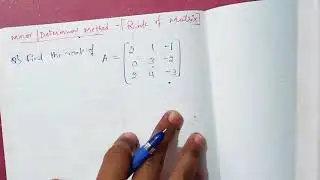 Minor | Determinant Method - | Rank of Matrix |
Q) Find the rank of A = [ 2 1 -1
0 3 -2
2 4 -3 ]